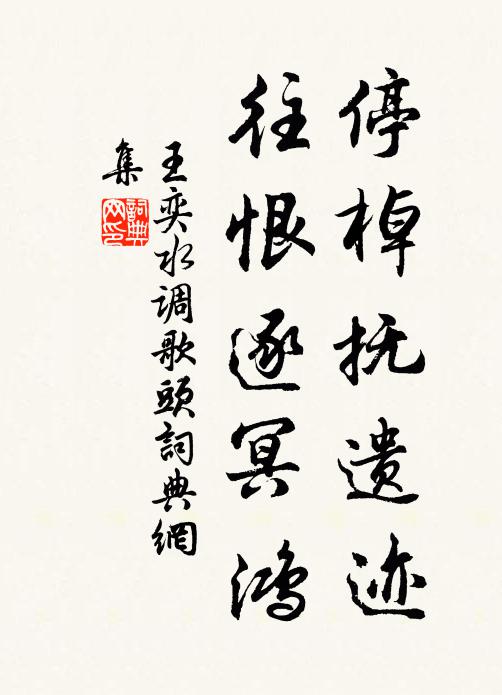 停棹抚遗迹
往恨逐冥鸿
王奕水调歌頭詞典網
集
詞典网印